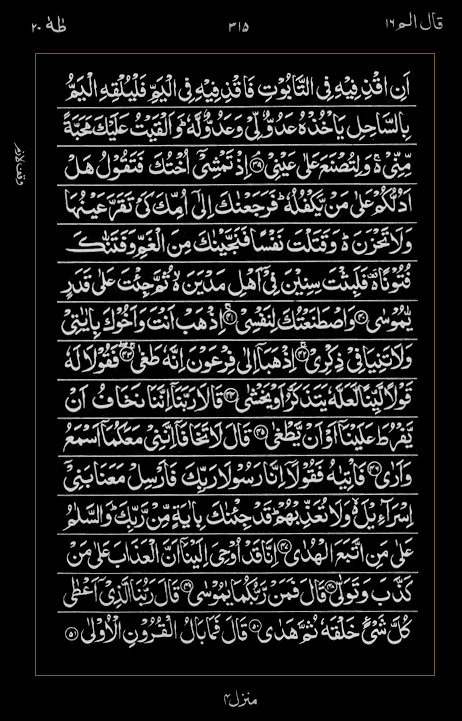 قال الم ١٦
٣١٥
طٰهٰ ٢٠
اَنِ اقْذِفِيْهِ فِى التَّابُوْتِ فَاقْذِفِيْهِ فِى الْيَمِّ فَلْيُلْقِهِ الْيَمُّ
بِالسَّاحِلِ يَاْخُذْهُ عَدُوٌّ لِّىْ وَعَدُوٌّ لَّهٗ ؕ وَاَلْقَيْتُ عَلَيْكَ مَحَبَّةً
مِّنِّىْ ۬ۚ وَلِتُصْنَعَ عَلٰى عَيْنِىْ ۘ‏﴿۳۹﴾ اِذْ تَمْشِىْۤ اُخْتُكَ فَتَقُوْلُ هَلْ
اَدُلُّكُمْ عَلٰى مَنْ يَّكْفُلُهٗ ؕ فَرَجَعْنٰكَ اِلٰٓى اُمِّكَ كَىْ تَقَرَّ عَيْنُهَا
وَلَا تَحْزَنَ ؕ وَقَتَلْتَ نَفْسًا فَنَجَّيْنٰكَ مِنَ الْغَمِّ وَفَتَنّٰكَ
فُتُوْنًا ۬ فَلَبِثْتَ سِنِيْنَ فِىْۤ اَهْلِ مَدْيَنَ ۙ ثُمَّ جِئْتَ عَلٰى قَدَرٍ
يّٰمُوْسٰى ﴿۴۰﴾ وَاصْطَنَعْتُكَ لِنَفْسِىْ ۚ﴿۴۱﴾ اِذْهَبْ اَنْتَ وَاَخُوْكَ بِاٰيٰتِىْ
وَلَا تَنِيَا فِىْ ذِكْرِىْ ۚ﴿۴۲﴾ اِذْهَبَاۤ اِلٰى فِرْعَوْنَ اِنَّهٗ طَغٰى ۖۚ﴿۴۳﴾ فَقُوْلَا لَهٗ
قَوْلًا لَّيِّنًا لَّعَلَّهٗ يَتَذَكَّرُ اَوْ يَخْشٰى ﴿۴۴﴾ قَالَا رَبَّنَاۤ اِنَّنَا نَخَافُ اَنْ
يَّفْرُطَ عَلَيْنَاۤ اَوْ اَنْ يَّطْغٰى ﴿۴۵﴾ قَالَ لَا تَخَافَاۤ اِنَّنِىْ مَعَكُمَاۤ اَسْمَعُ
وَاَرٰى ﴿۴۶﴾ فَاْتِيٰهُ فَقُوْلَاۤ اِنَّا رَسُوْلَا رَبِّكَ فَاَرْسِلْ مَعَنَا بَنِىْۤ
اِسْرَآءِيْلَ ۙ وَلَا تُعَذِّبْهُمْ ؕ قَدْ جِئْنٰكَ بِاٰيَةٍ مِّنْ رَّبِّكَ ؕ وَالسَّلٰمُ
عَلٰى مَنِ اتَّبَعَ الْهُدٰى ﴿۴۷﴾ اِنَّا قَدْ اُوْحِىَ اِلَيْنَاۤ اَنَّ الْعَذَابَ عَلٰى مَنْ
كَذَّبَ وَتَوَلّٰى ﴿۴۸﴾ قَالَ فَمَنْ رَّبُّكُمَا يٰمُوْسٰى ﴿۴۹﴾ قَالَ رَبُّنَا الَّذِىْۤ اَعْطٰى
كُلَّ شَىْءٍ خَلْقَهٗ ثُمَّ هَدٰى ﴿۵۰﴾ قَالَ فَمَا بَالُ الْقُرُوْنِ الْاُوْلٰى ﴿۵۱﴾
منزل ۴